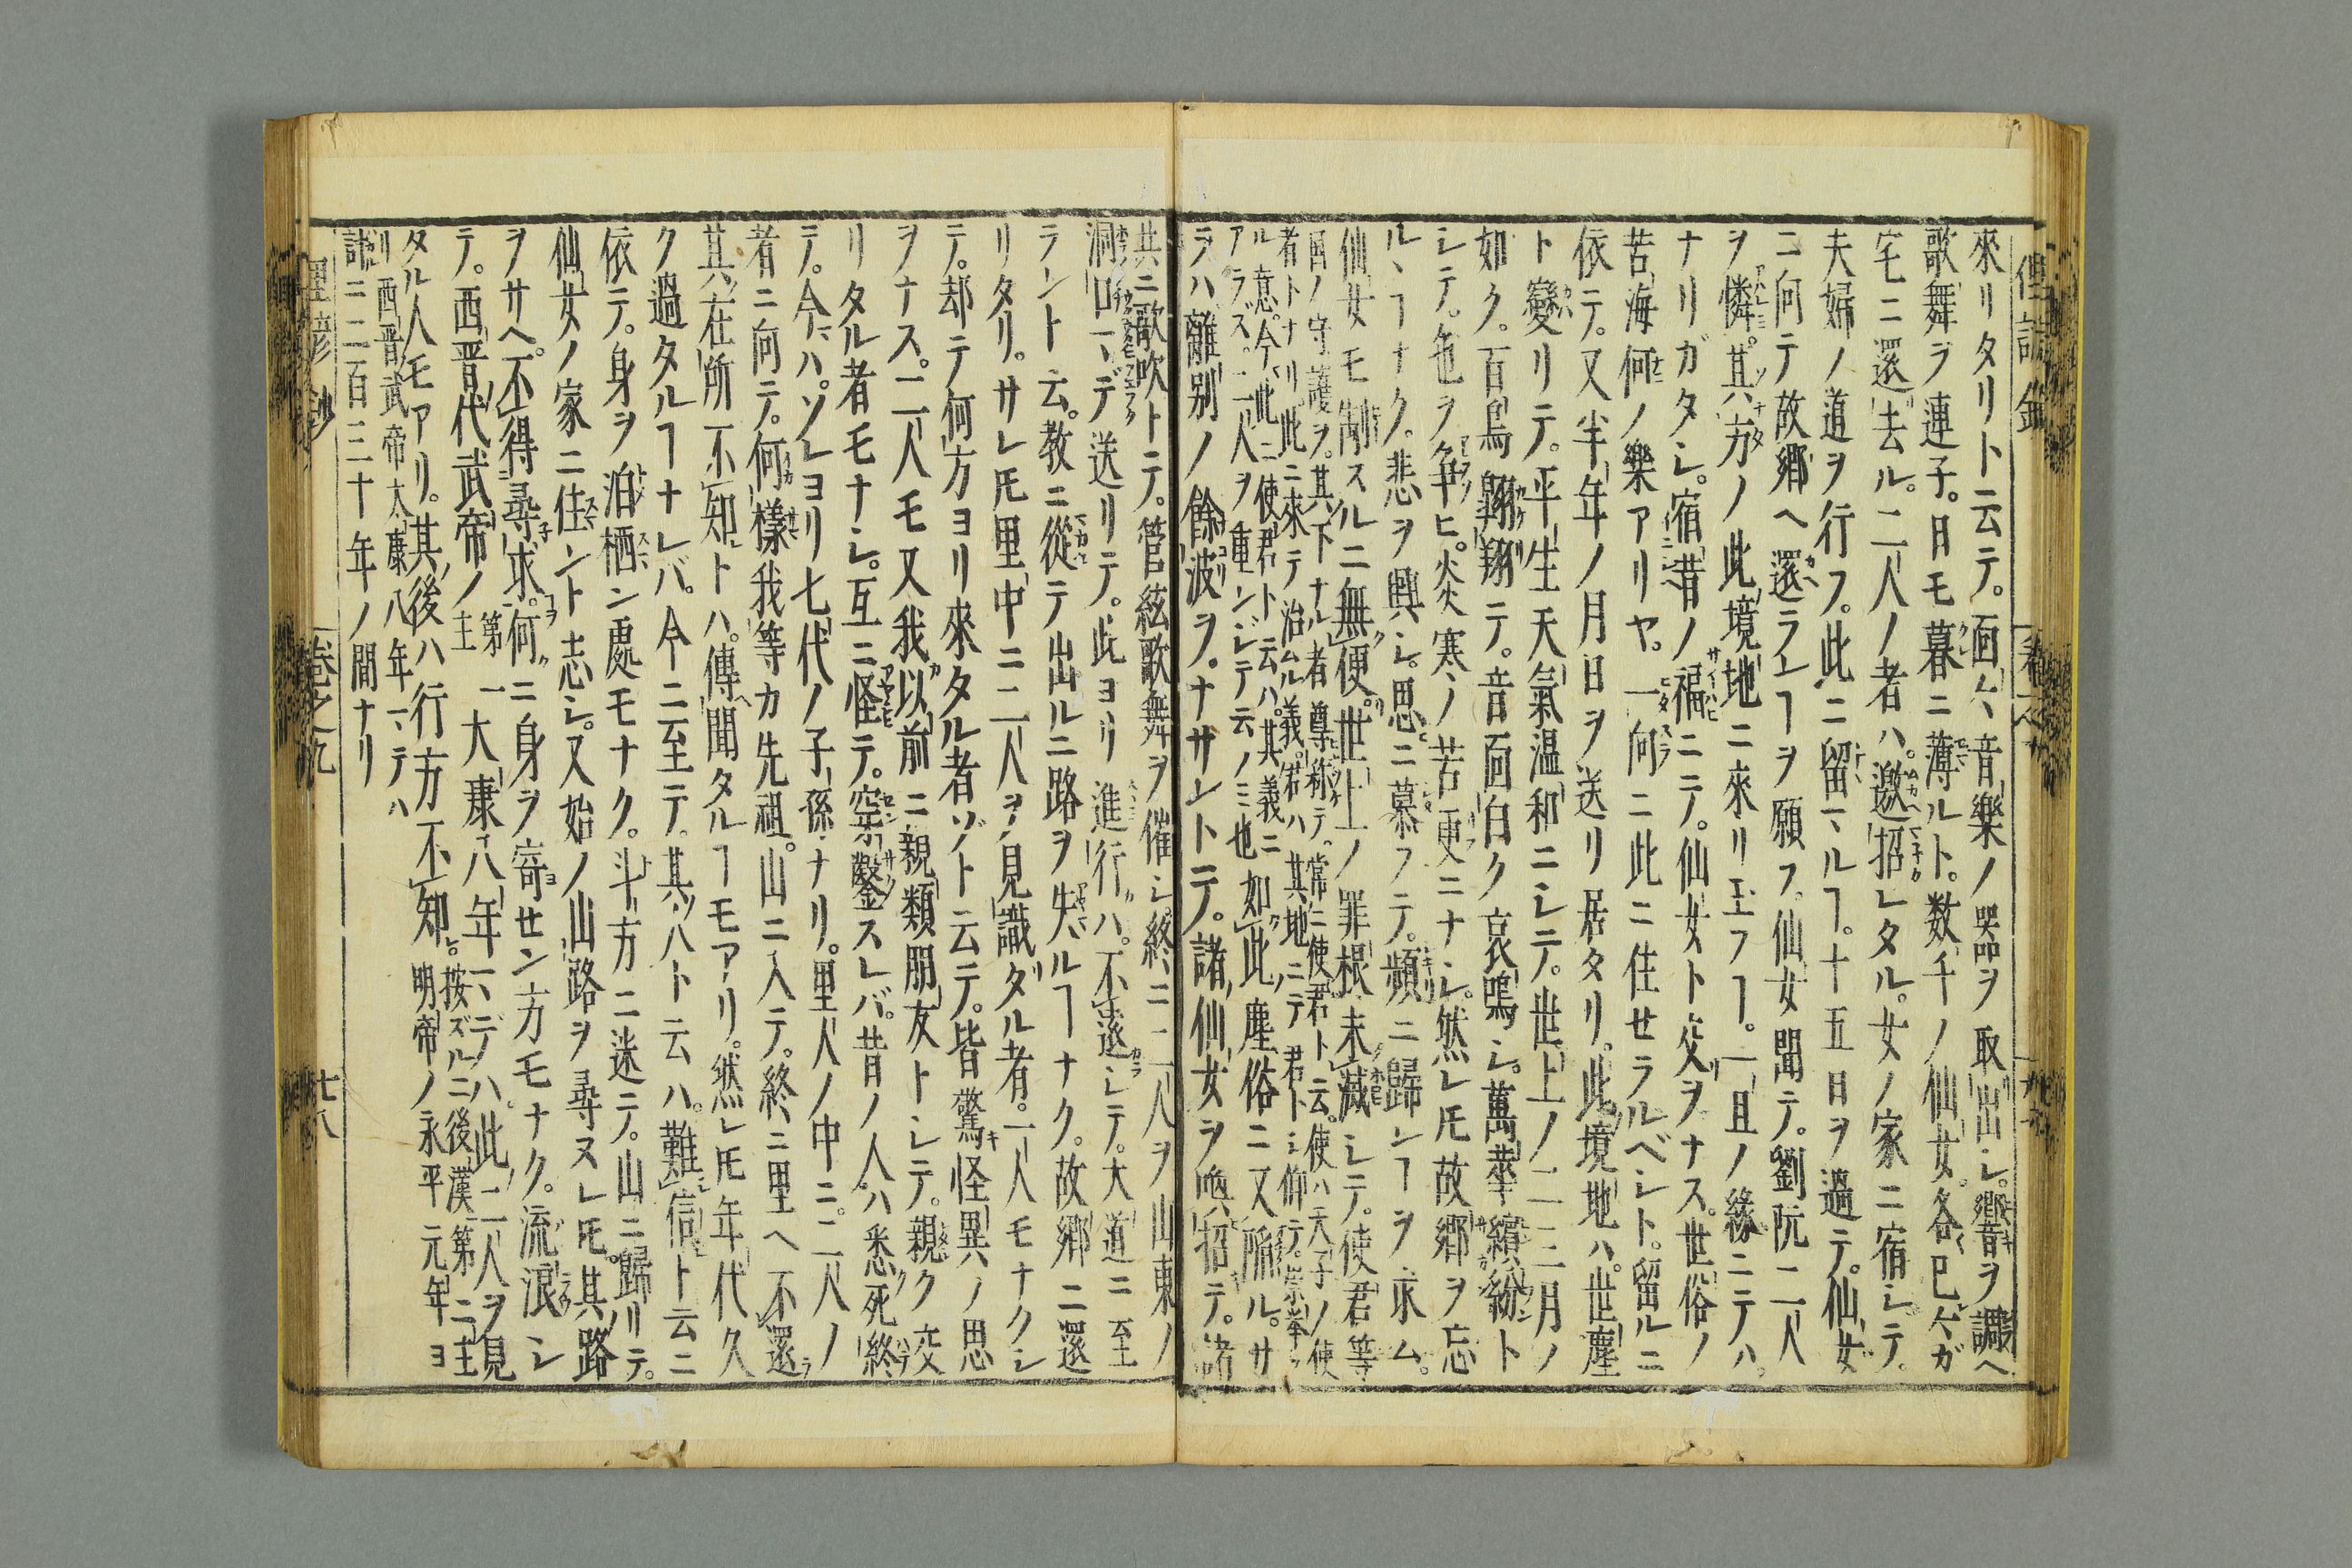 來リタリト云テ。面〻音樂ノ器ヲ取出シ。響音ヲ調ヘ
歌舞ヲ連子。日モ暮ニ薄ルト。数千ノ仙女。各已〻ガ
宅ニ還去ル。二人ノ者ハ。邀招レタル。女ノ家ニ宿シテ。
夫婦ノ道ヲ行フ。此ニ留マルヿ。十五日ヲ過テ。仙女
ニ向テ故郷ヘ還ランヿヲ願フ。仙女聞テ。劉阮二人
ヲ憐。其方ノ此境地ニ來リ玉フヿ。一旦ノ緣ニテハ。
ナリガタシ。宿昔ノ福ニテ。仙女ト交ヲナス。世俗ノ
苦海何ノ樂アリヤ。一向ニ此ニ住セラルベシト。留ルニ
依テ。又半年ノ月日ヲ送リ居タリ。此境地ハ。世塵
ト變リテ。平生天氣温和ニシテ。世上ノ二三月ノ
如ク。百鳥翺翔テ。音面白ク哀鳴シ。萬蕐繽紛ト
シテ。色ヲ争ヒ。炎寒ノ苦更ニナシ。然レ𪜈故郷ヲ忘
ルヽヿナク。悲ヲ興シ。思ニ慕フテ。頻ニ歸ンヿヲ求ム。
仙女モ制スルニ無便。世上ノ罪根未滅シテ。使君等
国ノ守護ヲ。其下ナル者尊称テ。常ニ使君ト云。使ハ天子ノ使
者トナリ。此ニ來テ治ムル義。君ハ其地ニテ君トミ仰テ。崇奉
ル意。今此ニ使君ト云ハ。其義ニ
アラズ。二人ヲ重ンジテ云ノミ也
如此塵俗ニ又隔ル。サ
ラハ離別ノ餘波ヲ。ナサントテ。諸仙女ヲ喚招テ。諸
共ニ歌吹トテ。管絃歌舞ヲ催シ終ニ二人ヲ山東ノ
洞口マデ送リテ。此ヨリ進行ハ。不遠シテ。大道ニ至
ラント云。教ニ從テ出ルニ路ヲ失ルヿナク。故郷ニ還
リタリ。サレ𪜈里中ニ二人ヲ見識ダル者。一人モナクシ
テ。却テ何方ヨリ來タル者ゾト云テ。皆驚怪異ノ思
ヲナス。二人モ又我以前ニ親類朋友トシテ。親ク交
リタル者モナシ。互ニ怪テ。穿鑿スレバ。昔ノ人ハ悉死終
テ。今ハ。ソレヨリ七代ノ子孫ナリ。里人ノ中ニ。二人ノ
者ニ向テ。何樣我等カ先祖。山ニ入テ。終ニ里ヘ不還
其在所不知トハ。傳聞タルヿモアリ。然レ𪜈年代久
ク過タルヿナレバ。今ニ至テ。其人ト云ハ。難信ト云ニ
依テ。身ヲ泊栖ン處モナク。斗方ニ迷テ。山ニ歸リテ。
仙女ノ家ニ住ント志シ。又始ノ山路ヲ尋ヌレ𪜈。其路
ヲサヘ。不得尋求。何ニ身ヲ寄セン方モナク。流浪シ
テ。西晋代武帝ノ第一主大康八年マデハ。此二人ヲ見
タル人モアリ。其後ハ行方不知。按ズルニ後漢第二主
明帝ノ永平元年ヨ
リ西晋武帝大康八年マテハ
計ニ二百三十年ノ間ナリ
里諺鈔 卷之九 廿八